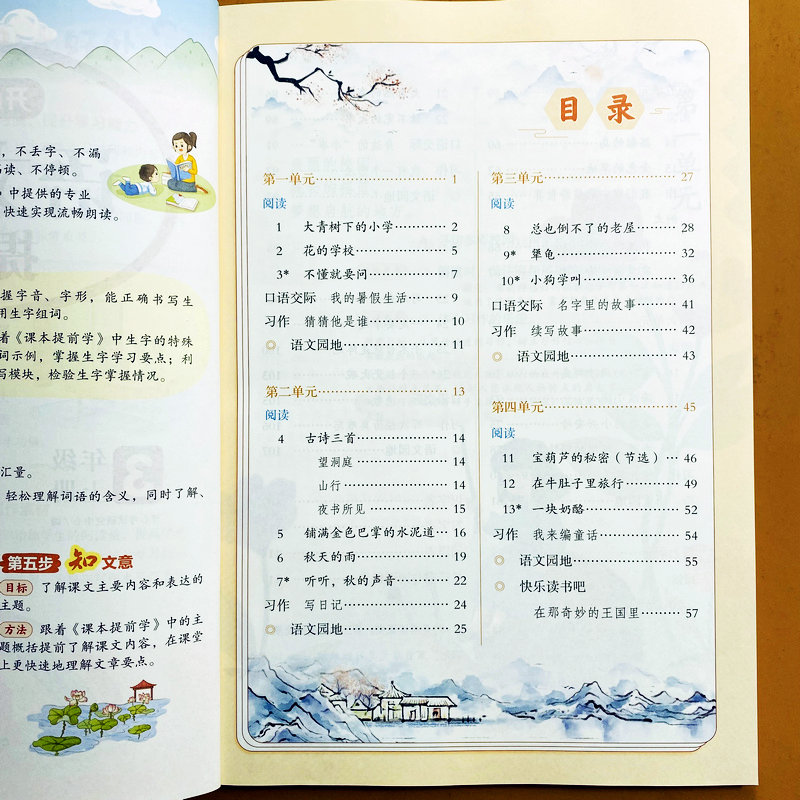 ，不丢字、不漏
读、不停顿。
中提供的专业
快速实现流畅朗读。
握字音、字形，能正确书写生
用生字组词。
着《课本提前学》中生字的特殊
词示例，掌握生字学习要点；利
写模块，检验生字掌握情况。
汇量。
轻松理解词语的含义，同时了解、
第五步 知文意
目标 了解课文主要内容和表达的
主题。
方法 跟着《课本提前学》中的主
题概括提前了解课文内容，在课堂
上更快速地理解文章要点。
目录
第一单元 1
阅读
1 大青树下的小学 2
2 花的学校 5
3* 不懂就要问 7
口语交际 我的暑假生活 9
习作 猜猜他是谁 10
◎ 语文园地 11
第二单元 13
阅读
4 古诗三首 14
望洞庭 14
山行 14
夜书所见 15
5 铺满金色巴掌的水泥道 16
6 秋天的雨 19
7* 听听，秋的声音 22
习作 写日记 24
◎ 语文园地 25
第三单元 27
阅读
8 总也倒不了的老屋 28
9* 犟龟 32
10* 小狗学叫 36
口语交际 名字里的故事 41
习作 续写故事 42
◎ 语文园地 43
第四单元 45
阅读
11 宝葫芦的秘密（节选） 46
12 在牛肚子里旅行 49
13* 一块奶酪 52
习作 我来编童话 54
◎ 语文园地 55
◎ 快乐读书吧
在那奇妙的王国里 57